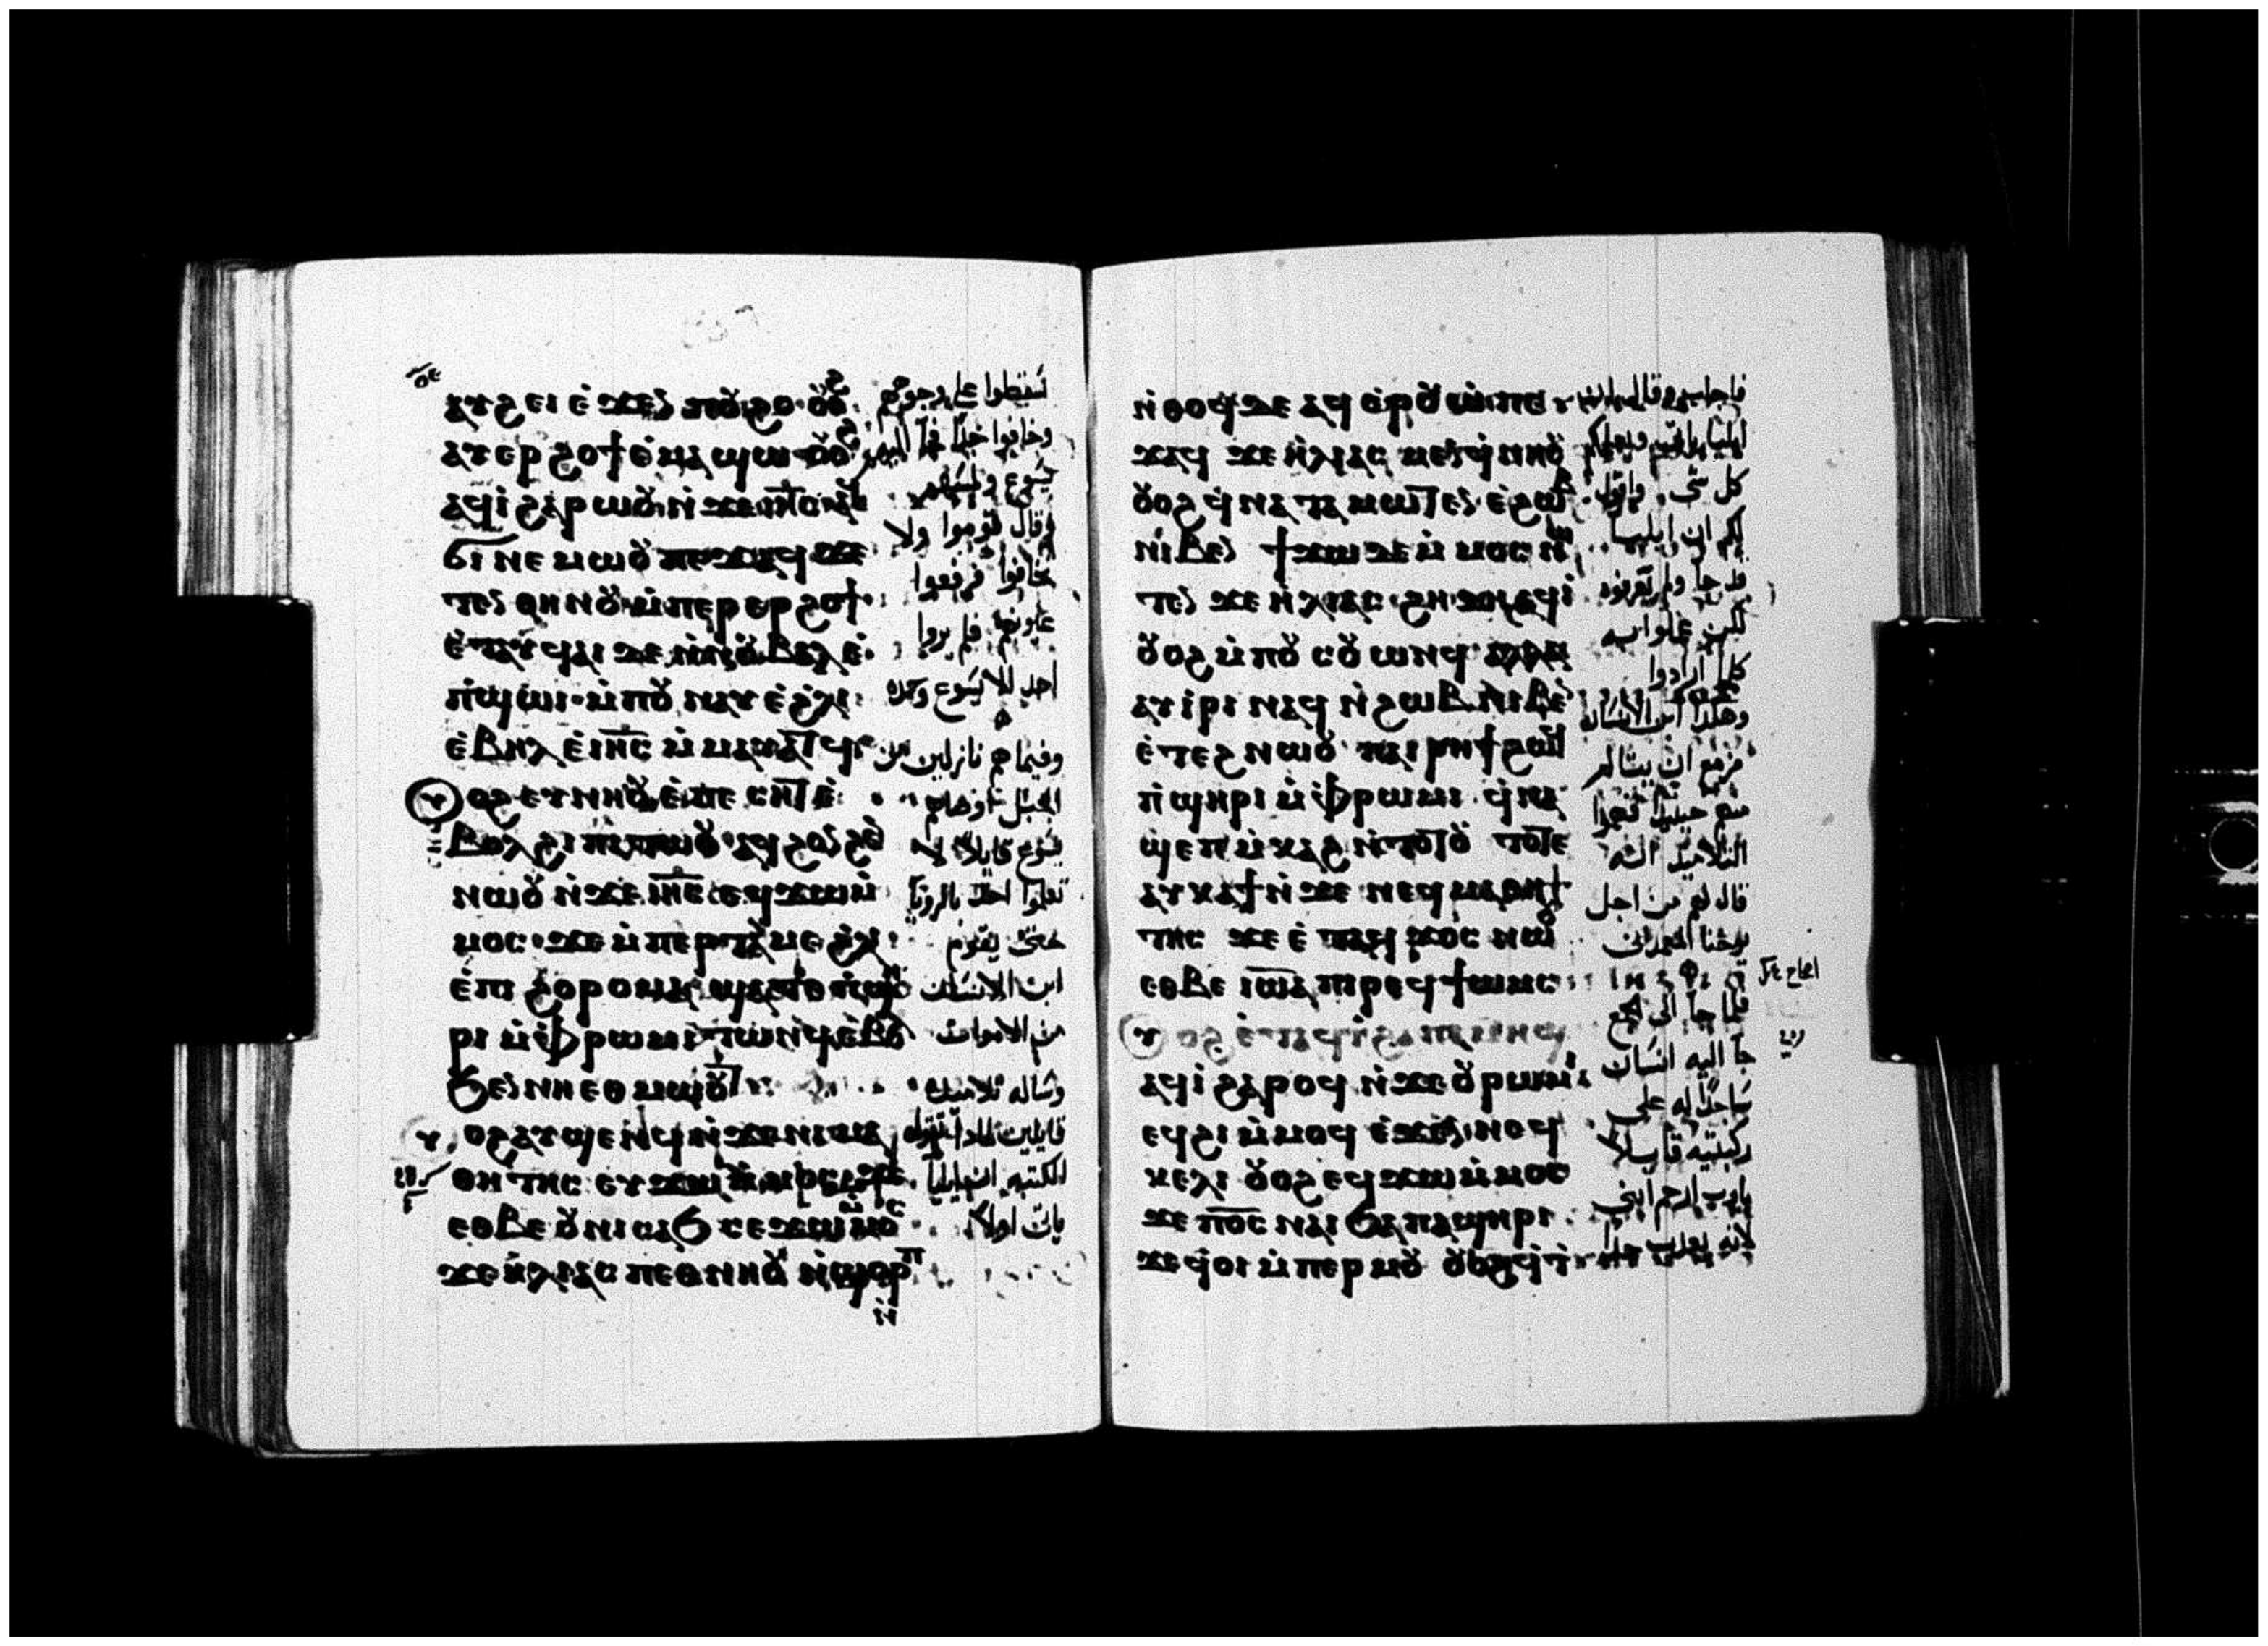 ⲁⲩϩⲉⲓ ⲉ̀ϫⲉⲛ ⲡⲟⲩϩⲟ ⲟⲩⲟϩ
ⲁⲩⲉⲣϩⲟϯ ⲉ̀ⲙⲁϣⲱ ⲟⲩⲟϩ
ⲁϥⲓ̀ ϩⲁⲣⲱⲟⲩ ⲛ̀ϫⲉ
ϭⲓ ⲛⲉⲙⲱⲟⲩ ⲡⲉϫⲁϥ ϫⲉ
ⲧⲉⲛ ⲑⲏⲛⲟⲩ ⲙ̀ⲡⲉⲣⲉⲣϩⲟϯ
ⲉ̀ⲧⲁⲩϥⲁⲓ ⲇⲉ ⲛ̀ⲛⲟⲩⲃⲁⲗ ⲉ̀
ⲡ̀ϣⲱⲓ ⲙ̀ⲡⲟⲩⲛⲁⲩ ⲉ̀ϩ̀ⲗⲓ
ⲉ̀ⲃⲏⲗ ⲉ̀ⲓⲏ̅ⲥ ⲙ̀ⲙⲁⲩⲁⲧϥ
ⲩⲟϩ ⲉⲩⲛⲏⲟⲩ ⲉ̀ⲡⲉⲥⲏⲧ ⲉ̀
ⲃⲟⲗ ϩⲓ ⲡⲓⲧⲱⲟⲩ ⲁϥϩⲟⲛϩⲉⲛ
ⲛⲱⲟⲩ ⲛ̀ϫⲉ ⲓⲏ̅ⲥ ⲉϥϫⲱ ⲙ̀
ⲙⲟⲥ ϫⲉ ⲙ̀ⲡⲉⲣⲧⲁⲙⲉ ϩ̀ⲗⲓ
ⲉ̀ⲡⲓϩⲟⲣⲟⲙⲁ ϣⲁⲧⲉ ⲡ̀ϣⲏ
ⲣⲓ ⲙ̀ⲫ̀ⲣⲱⲙⲓ ⲧⲱⲛϥ ⲉ̀ⲃⲟⲗ
ϧⲉⲛ ⲛⲏⲉⲑⲙⲱⲟⲩⲧ
ⲩⲟϩ ⲁⲩϣⲉⲛϥ ⲛ̀ϫⲉ ⲛⲓⲙⲁ
ⲑⲏⲧⲏⲥ ⲉⲩϫⲱ ⲙ̀ⲙⲟⲥ ϫⲉ
ⲉⲑⲃⲉ ⲟⲩ ⲛⲓⲥⲁϧ ⲥⲉϫⲱ ⲙ̀ⲙⲟⲥ
ϫⲉ ⲏ̀ⲗⲓⲁⲥ ⲡⲉⲑⲛⲏⲟⲩ ⲛ̀ϣⲟⲣⲡ
سقطوا على وجوههم
وخافوا جدًا
يسوع
وقال قوموا ولا
تخافوا فرفعوا
عيونهم فلم يروا
احد الا يسوع وحده
وفيما هم نازلين من
الجبل اوصاهم
يسوع قايلا لا
تعلموا احد بالرويا
حتى يقوم
ابن الانسان
من الاموات
وساله تلاميذه
قايلين لماذا تقول
الكتبه ان ايليا
يات اولا
ⲛ̀ⲑⲟϥ ⲇⲉ ⲁϥⲉⲣⲟⲩⲱ̀ ⲡⲉ
ϫⲁϥ ϫⲉ ⲏ̀ⲗⲓⲁⲥ ⲙⲉⲛ ϥ̀ⲛⲏⲟⲩ
ⲟⲩⲟϩ ϥ̀ⲛⲁⲧⲁⲙⲱⲧⲉⲛ ⲉ̀ϩⲱⲃ
ⲛⲓⲃⲉⲛ ϯϫⲱ ⲇⲉ ⲙ̀ⲙⲟⲥ ⲛⲱ
ⲧⲉⲛ ϫⲉ ⲏ̀ⲗⲓⲁⲥ ϩⲏⲇⲏ ⲁϥⲓ̀
ⲟⲩⲟϩ ⲙ̀ⲡⲟⲩⲥⲟⲩⲱⲛϥ ⲁⲗⲗⲁ
ⲁⲩⲓ̀ⲣⲓ ⲛⲁϥ ⲛ̀ϩⲱⲃ ⲛⲓⲃⲉⲛ
ⲉ̀ⲧⲉϩⲛⲱⲟⲩ ⲡⲁⲓⲣⲏϯ ϩⲱϥ
ⲡ̀ϣⲏⲣⲓ ⲙ̀ⲫ̀ⲣⲱⲙⲓ ϥ̀ⲛⲁ
ϣⲉⲡ ⲙ̀ⲕⲁϩ ⲛ̀ⲧⲟⲧⲟⲩ ⲧⲟⲧⲉ
ⲁⲩⲕⲁϯ ⲛ̀ϫⲉ ⲛⲉϥⲙⲁⲑⲏ
ⲧⲏⲥ ϫⲉ ⲉ̀ⲧⲁϥϫⲟⲥ ⲛⲱⲟⲩ
ⲉⲑⲃⲉ ⲓⲱ̅ⲁ ⲡⲓⲣⲉϥϯⲱⲙⲥ
ⲩⲟϩ ⲉ̀ⲧⲁϥⲓ̀ ϩⲁ ⲡⲓⲙⲏϣ
ⲁϥⲓ̀ ϩⲁⲣⲟϥ ⲛ̀ϫⲉ ⲟⲩⲣⲱⲙⲓ
ⲉϥϩⲓ ⲙ̀ⲙⲟϥ ⲉ̀ϫⲉⲛ ⲛⲉϥ
ⲕⲉⲗⲓ ⲟⲩⲟϩ ⲉϥϫⲱ ⲙ̀ⲙⲟⲥ
ϫⲉ ⲡ̅ⲟ̅ⲥ ⲛⲁⲓ ϧⲁ ⲡⲁϣⲏⲣⲓ
ϫⲉ ϥ̀ⲟⲓ ⲙ̀ⲡⲉⲣⲙⲟⲩ ⲟⲩⲟϩ ϥ̀ⲧ̀
فاجاب وقال
ايليا
كل شى واقول
لكم ان ايليا
قد جا ولم تعرفوه
لكن عملوا به
كلما ارادوا
وهكذا ابن الانسان
مزمع ان يتالم
منهم حينيذ
التلاميذ انه
قال لهم من اجل
يوحنا المعمدانى
فلما جا الى الجمع
جا اليه انسان
ساجدًا له على
ركبتيه قايلا
يارب ارحم ابنى
لانه